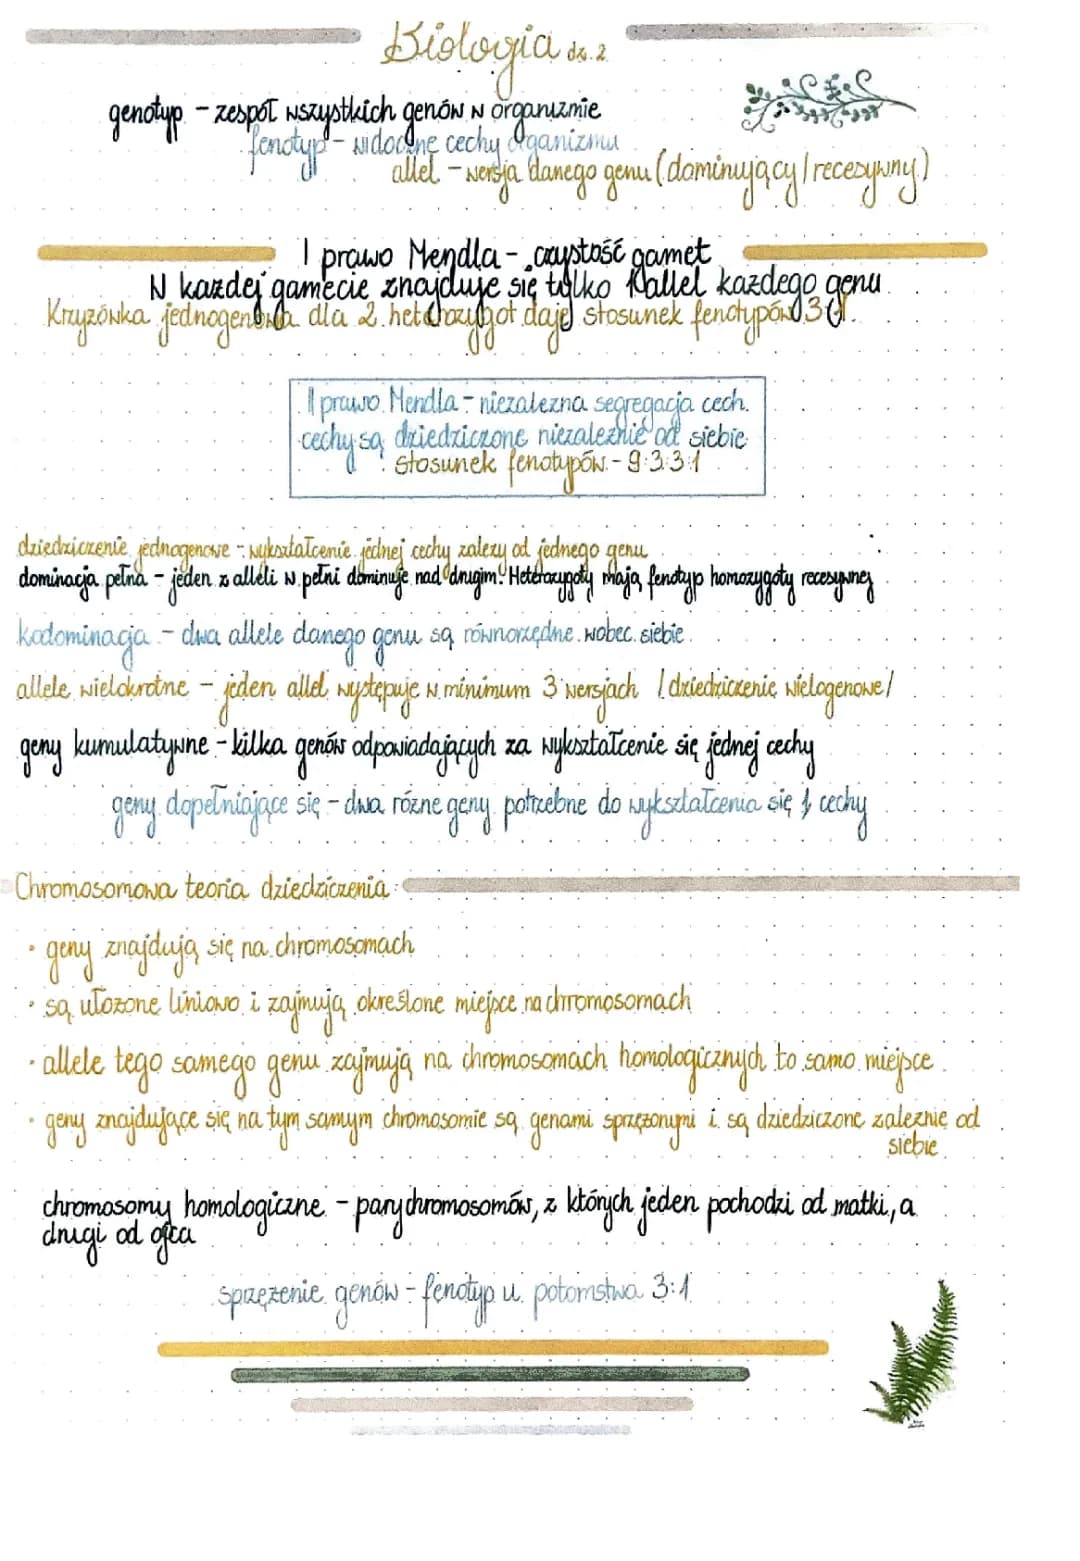 Biologia dz. 2
genotyp - zespół wszystkich genów w organizmie
fenotyp - widoczne cechy organizmu
allel - wersja danego genu (dominujący / recesywny)
I prawo Mendla - czystość gamet
W każdej gamecie znajduje się tylko 1 allel każdego genu
Krzyżówka jednogenowa dla 2 heterozygot daje stosunek fenotypów 3:1.
II prawo Mendla - niezależna segregacja cech.
cechy są dziedziczone niezależnie od siebie
stosunek fenotypów - 9:3:3:1
dziedziczenie jednogenowe - wykształcenie jednej cechy zależy od jednego genu
dominacja pełna - jeden z alleli w pełni dominuje nad drugim. Heterozygoty mają fenotyp homozygoty recesywnej
kodominacja - dwa allele danego genu są równorzędne wobec siebie
allele wielokrotne - jeden allel występuje w minimum 3 wersjach /dziedziczenie wielogenowe/
geny kumulatywne - kilka genów odpowiadających za wykształcenie się jednej cechy
geny dopełniające się - dwa różne geny potrzebne do wykształcenia się 1 cechy
Chromosomowa teoria dziedziczenia:
• geny znajdują się na chromosomach
• są ułożone liniowo i zajmują określone miejsce na chromosomach
• allele tego samego genu zajmują na chromosomach homologicznych to samo miejsce
• geny znajdujące się na tym samym chromosomie są genami sprzężonymi i są dziedziczone zależnie od
siebie
chromosomy homologiczne - pary chromosomów, z których jeden pochodzi od matki, a
drugi od ojca
sprzężenie genów - fenotyp u potomstwa 3:1